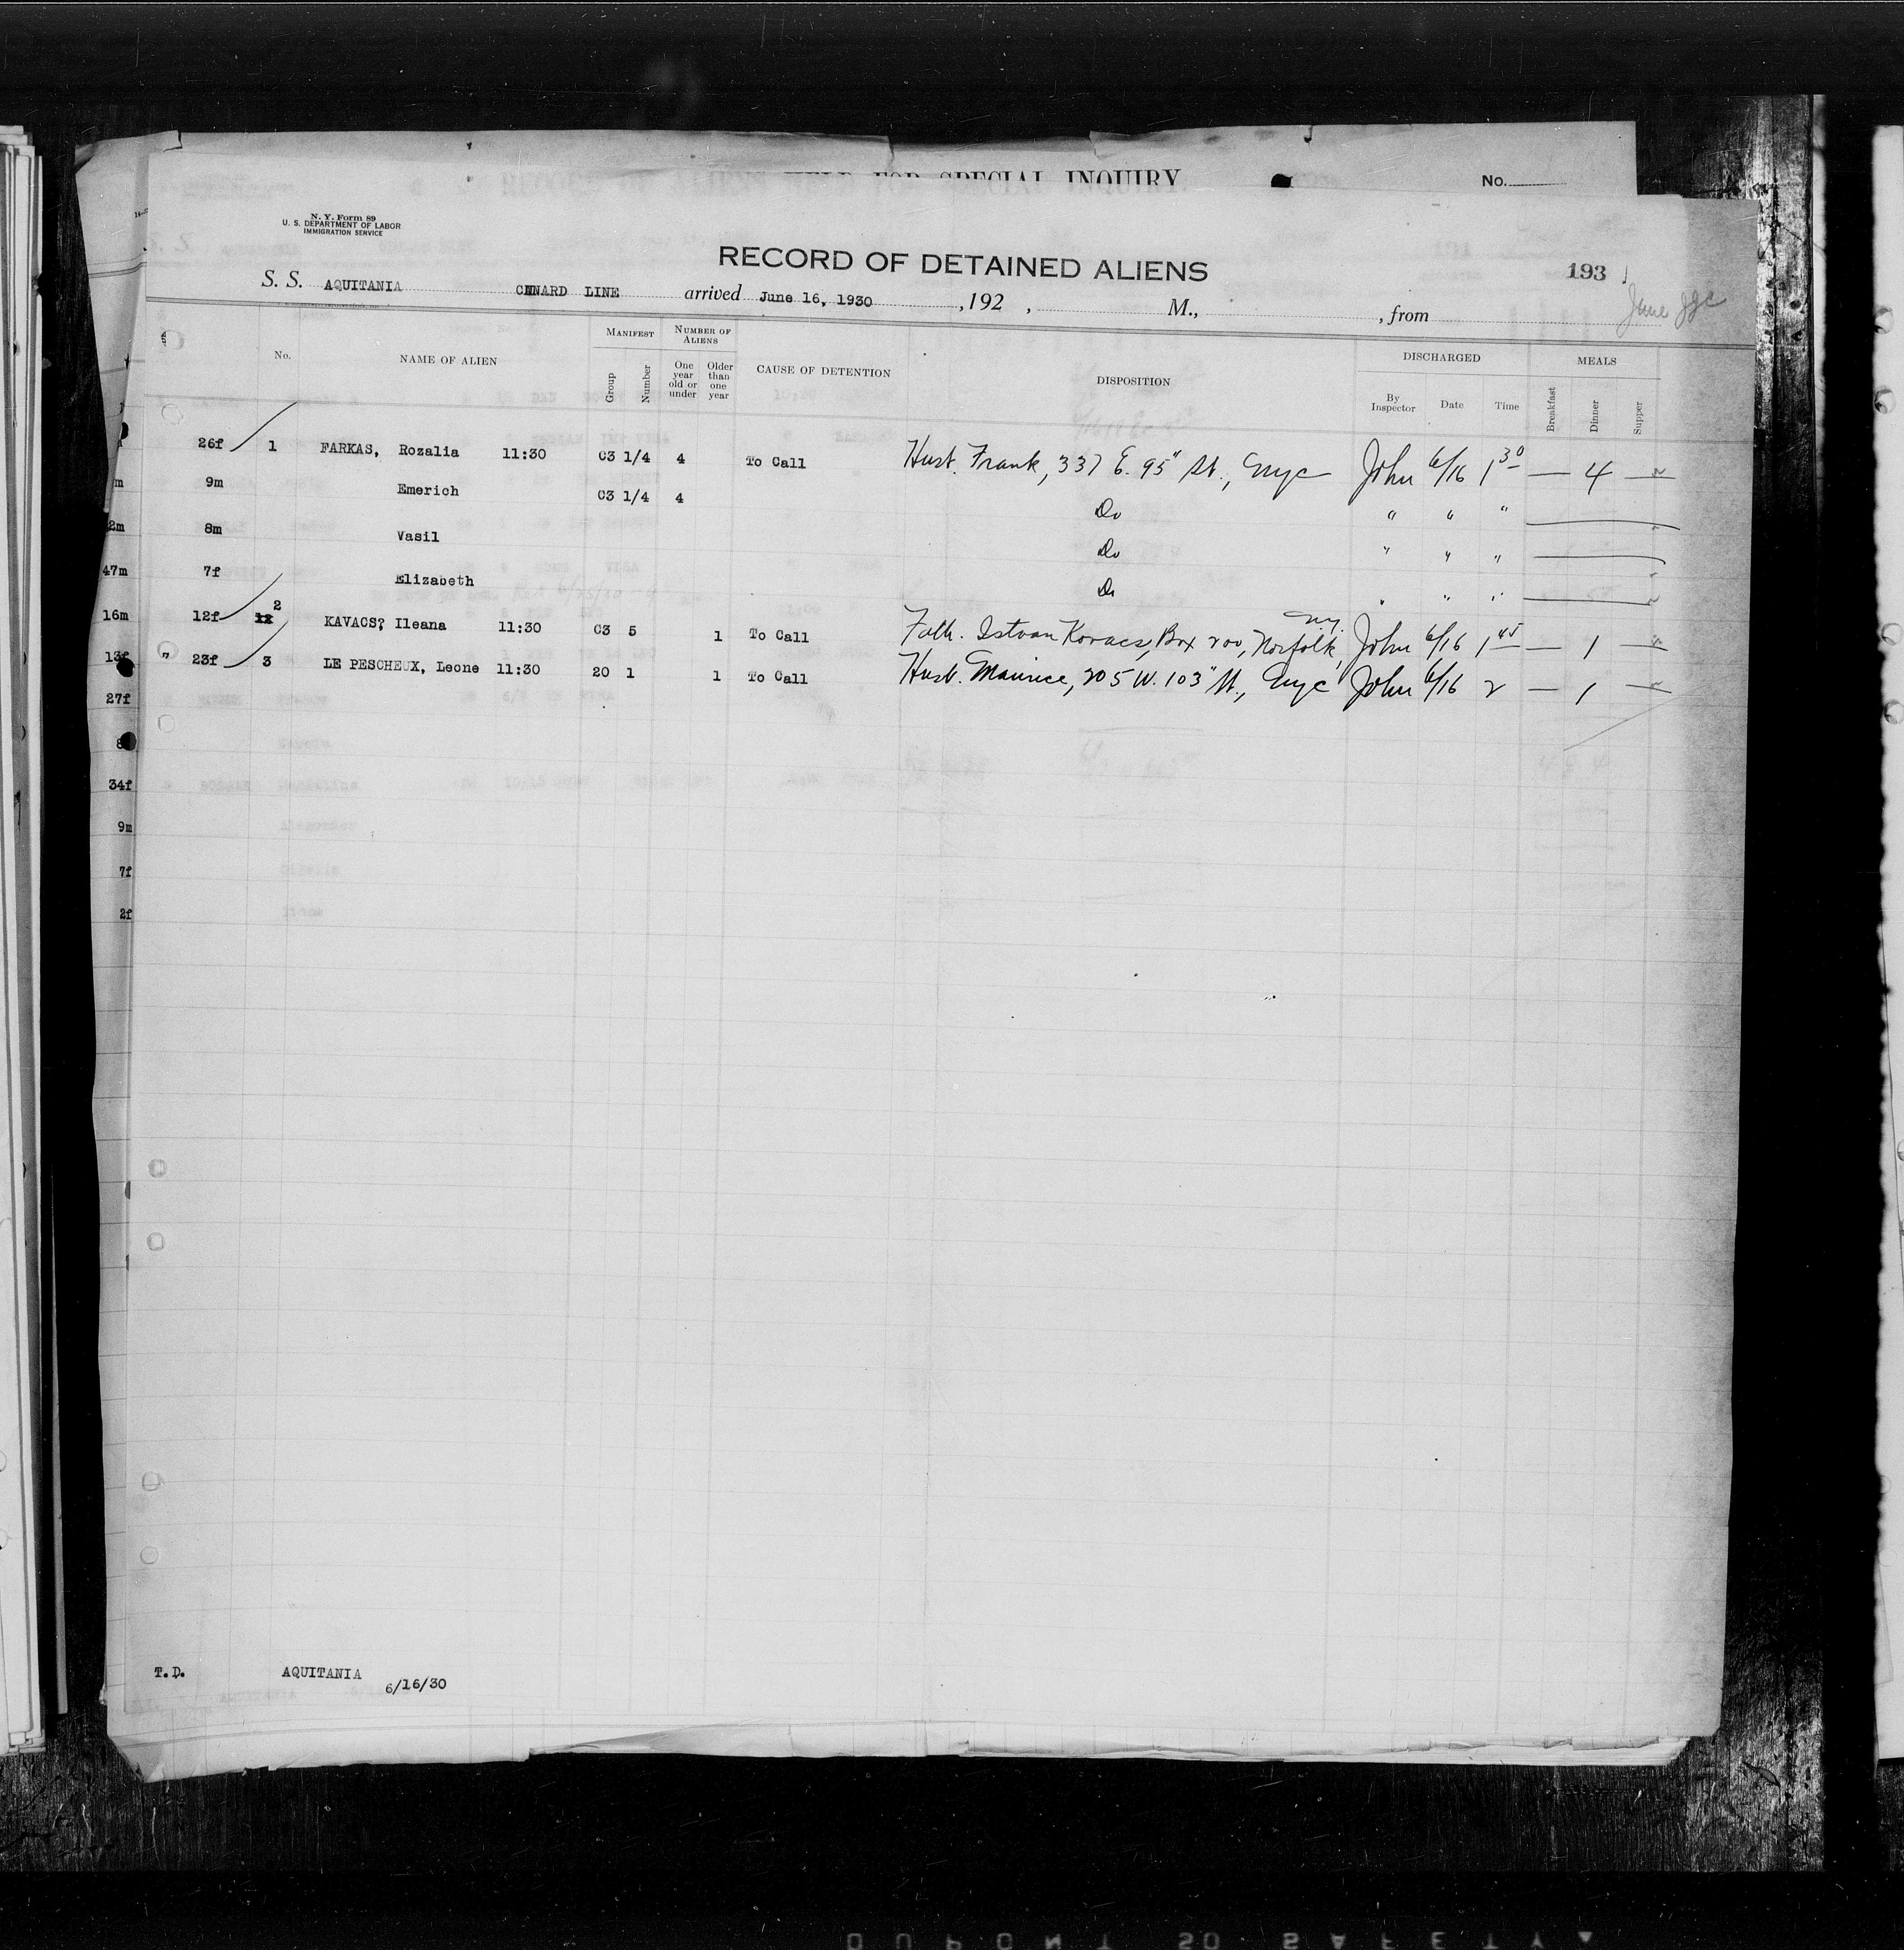 RECORD OF ALIENS HELD FOR SPECIAL INQUIRY
No.
N. Y. Form 89
U. S. DEPARTMENT OF LABOR
IMMIGRATION SERVICE
RECORD OF DETAINED ALIENS
193
S. S. AQUITANIA CUNARD LINE arrived June 16, 1930, 192 , M., , from
June
No. NAME OF ALIEN MANIFEST Group Number NUMBER OF ALIENS One year old or under Older than one year CAUSE OF DETENTION DISPOSITION DISCHARGED By Inspector Date Time MEALS Breakfast Dinner Supper
26f 1 FARKAS, Rozalia 11:30 C3 1/4 4 To Call Hust. Frank, 337 E. 95" St., Nyc John 6/16 1 30 — 4 —
m 9m Emerich C3 1/4 4 Do " " "
2m 8m Vasil Do " " "
47m 7f Elizabeth Do " " "
16m 12f 2 KAVACS? Ileana 11:30 C3 5 1 To Call Fath. Istvan Kovacs, Box 200, Norfolk, N.Y. John 6/16 1 45 — 1 —
13f 7 23f 3 LE PESCHEUX, Leone 11:30 20 1 1 To Call Husb. Maurice, 205 W. 103" St., Nyc John 6/16 2 — 1 —
27f
8
34f
9m
7f
2f
T.D. AQUITANIA 6/16/30
DUPONT 50 SAFETY